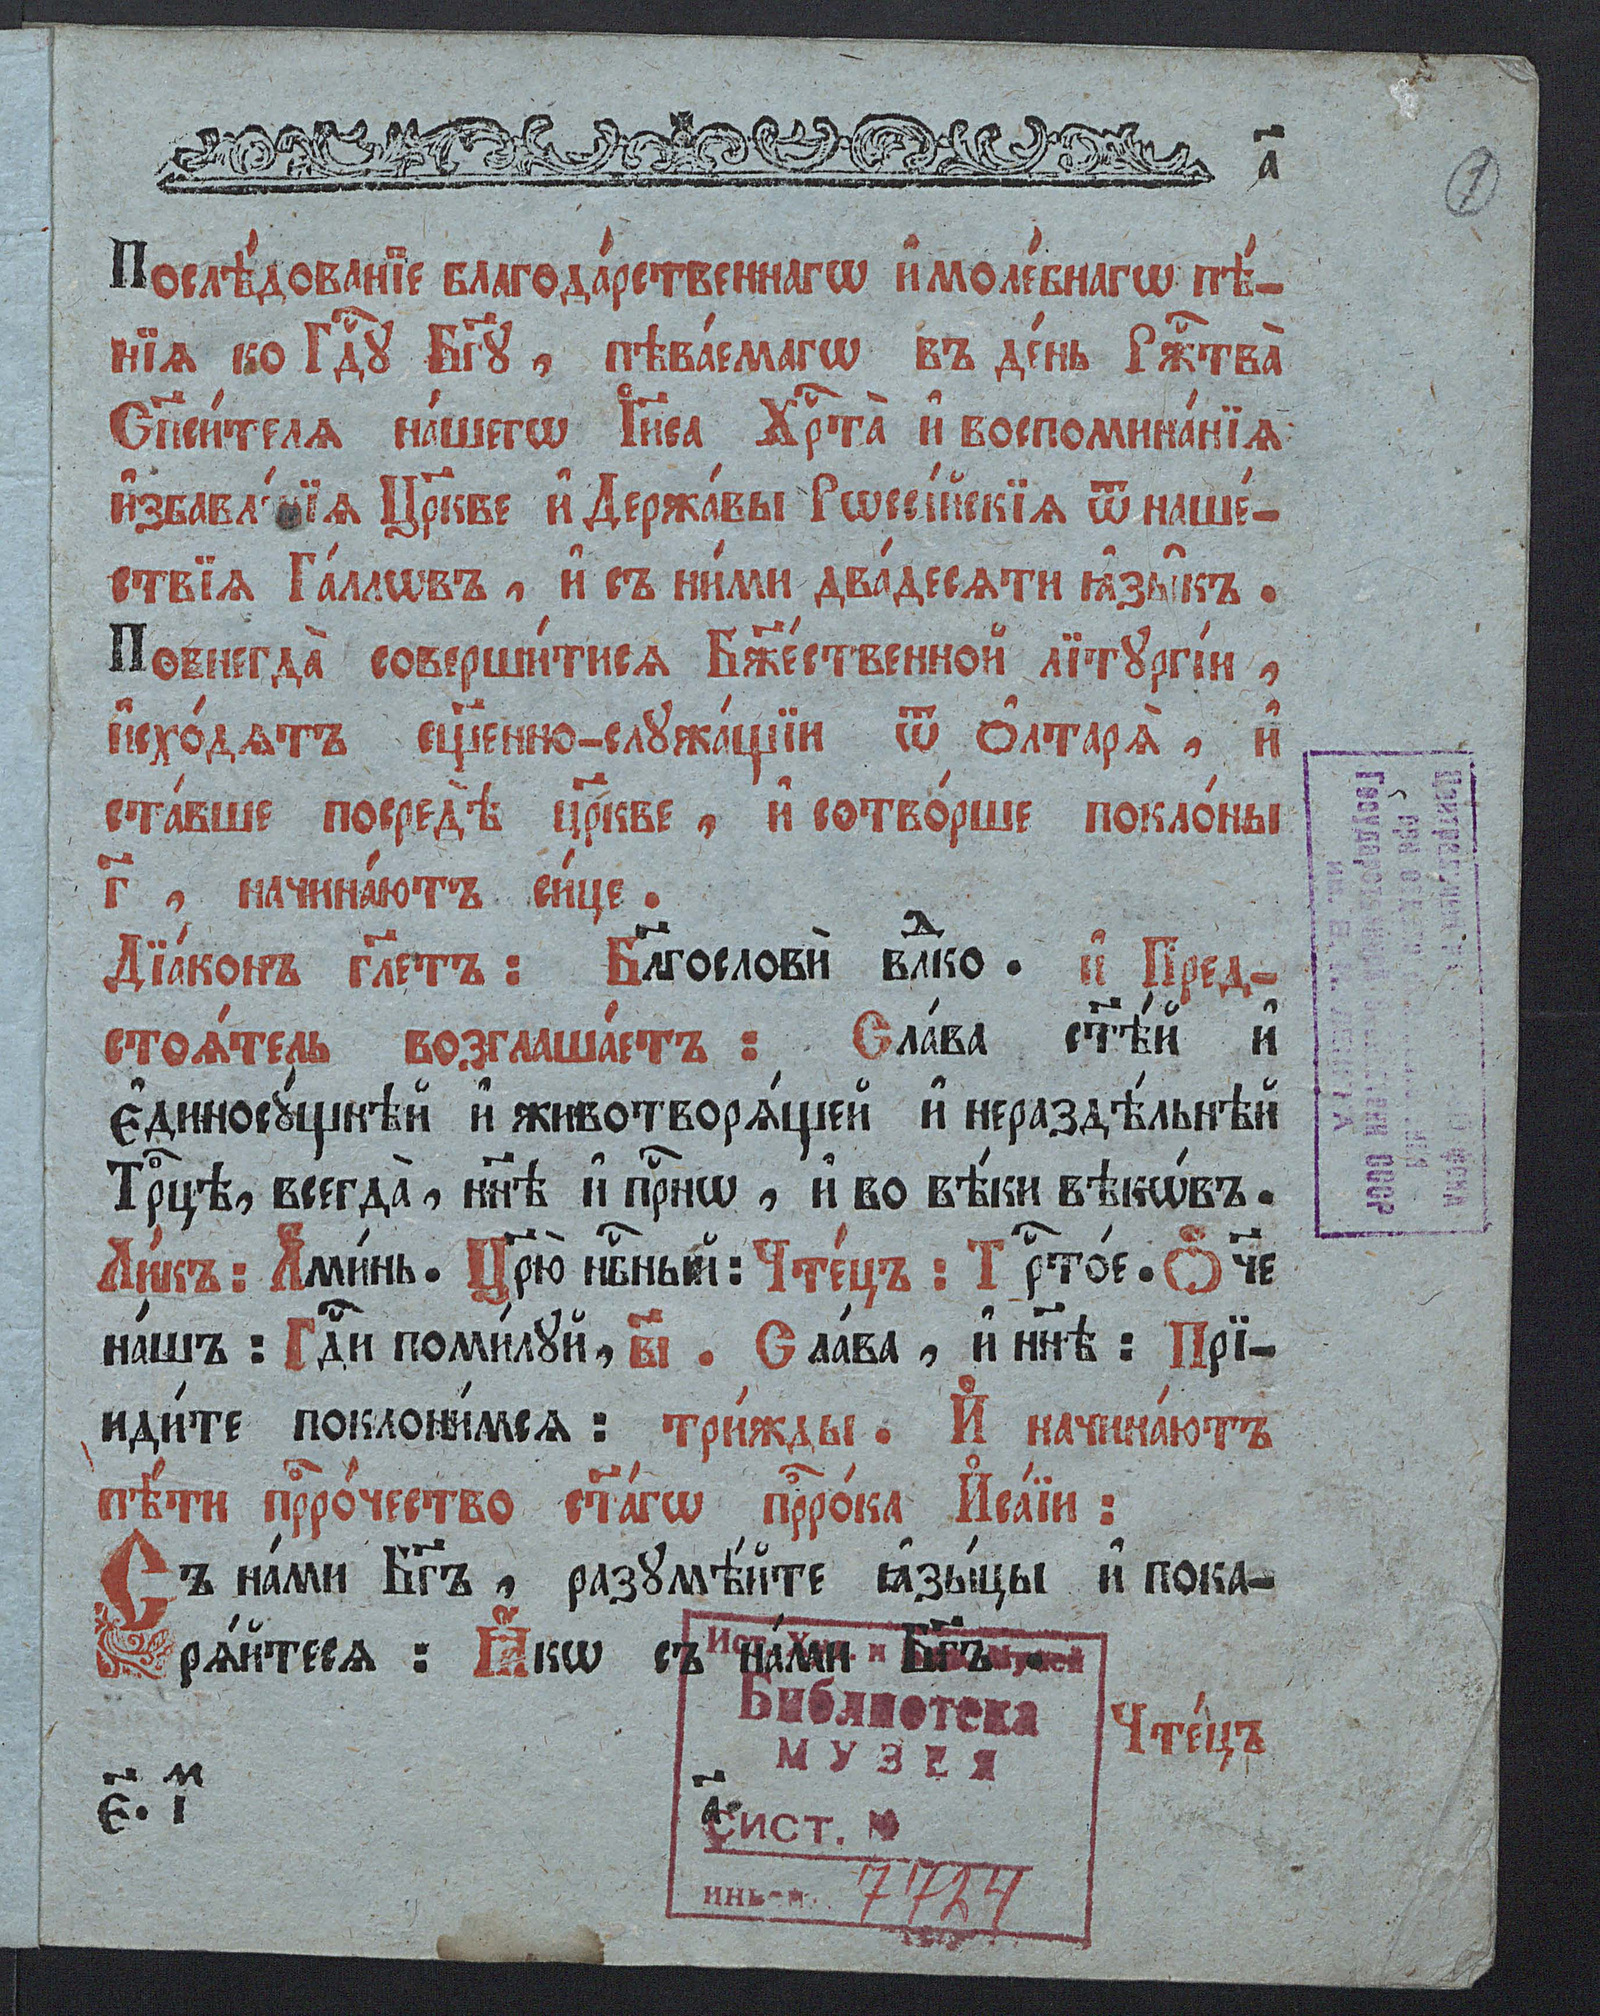 а҃
1
Послѣ́дованїе благода́рственнагѡ и҆ моле́бнагѡ пѣ́-
нїя ко Гд҇ꙋ Бг҃ꙋ, пѣва́емагѡ въ де́нь Рж҇тва̀
Сп҃си́теля на́шегѡ І҆и҃са Хр҇та̀ и҆ воспомина́нїѧ
и҆збавл́ нїѧ Цр҃кве и҆ Держа́вы Рѡссі́йскїѧ ѿ наше́-
ствїѧ Га́ллѡвъ, и҆ съ ни́ми два́десѧти ꙗ҆зы̑къ.
Повнегда̀ соверши́тисѧ Бж҃е́ственной лїтꙋргі́и,
и҆схо́дѧтъ сщ҃енно-слꙋжа́щїи ѿ ѻ҆лтарѧ̀, и҆
ста́вше посредѣ̀ цр҃кве, и҆ сотво́рше покло́ны
г҃, начина́ютъ си́це.
Дїа́конъ гл҃етъ: Бл҃гословѝ влⷣко. и҆ Пред-
стоѧ́тель возглаша́етъ: Сла́ва ст҃ѣ́й и҆
є҆диносꙋ́щнѣй и҆ животворѧ́щей и҆ нераздѣ́льнѣй
Трⷪ҇цѣ, всегда̀, нн҃ѣ и҆ пр҇нѡ, и҆ во вѣ́ки вѣкѡ́въ.
Ли́къ: А҆ми́нь. Цр҃ю̀ нб҇ный: Чте́цъ: Тр҇то́е. Ѻ҆́ч҃е
на́шъ: Гд҇и поми́лꙋй, в҃і. Сла́ва, и҆ нн҃ѣ: Прї-
иди́те поклони́мсѧ: три́жды. И҆ начина́ютъ
пѣ́ти прⷪ҇ро́чество ст҃а́гѡ прⷪ҇ро́ка И҆са́їи:
Съ на́ми Бг҃ъ, разꙋмѣ́йте ꙗ҆зы́цы и҆ пока-
рѧ́йтесѧ: Ꙗ҆́кѡ съ на́ми Бг҃ъ.
Чте́цъ
є҃. м і
а҃
Библиотека
МУЗЕЯ
Сист. №
инв. №. 7724
Государственной Библиотеки СССР
им. В. И. ЛЕНИНА